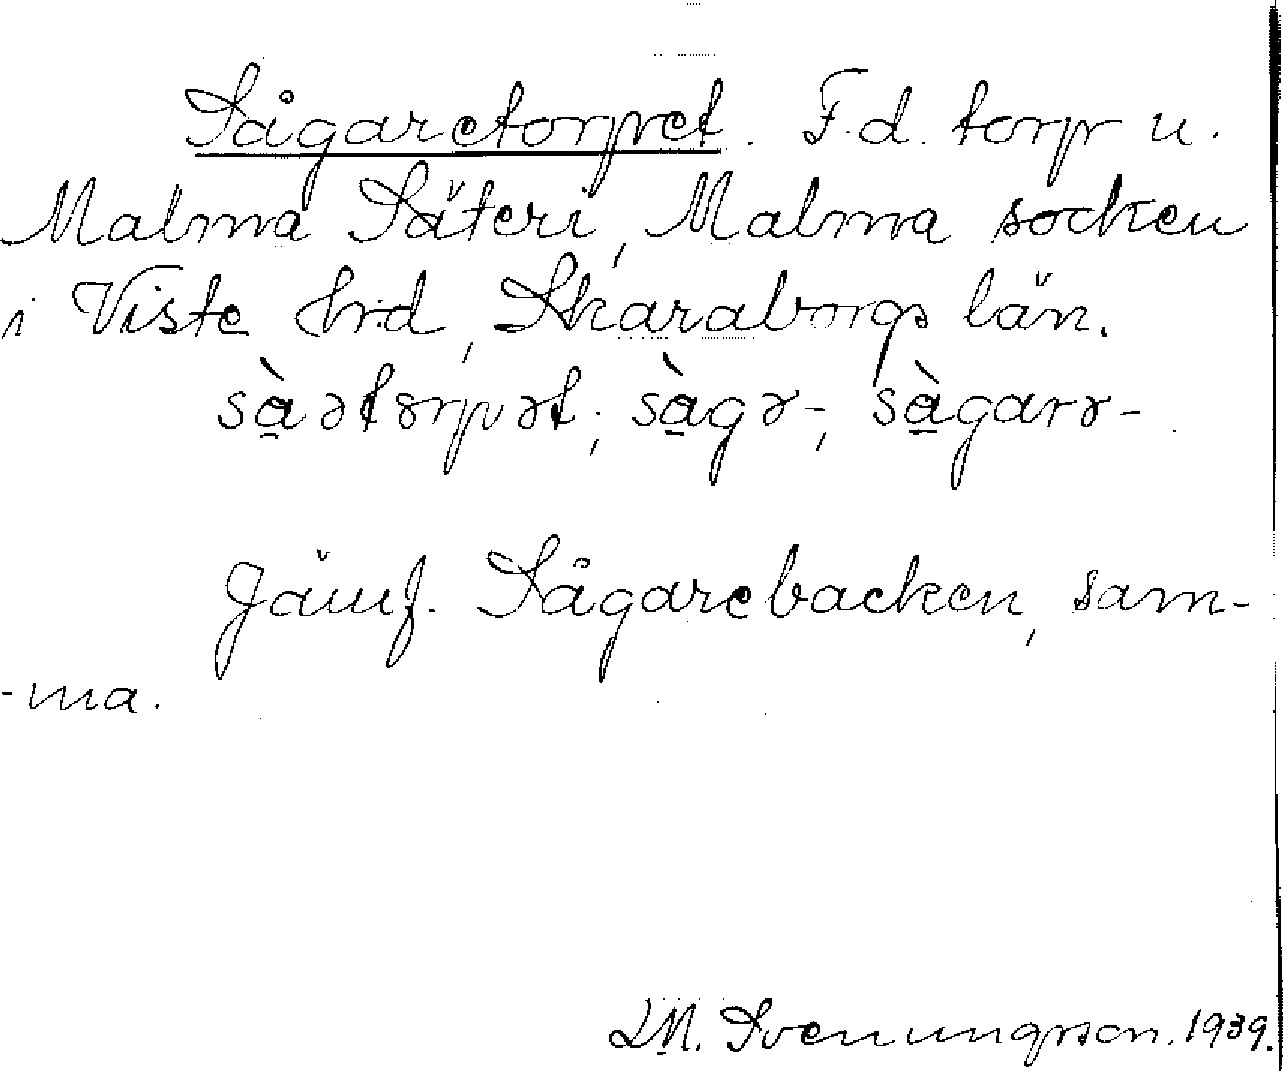 Sågaretorpet. F.d. torp u.
Malma Säteri, Malma socken
i Viste hrd, Skaraborgs län.
sὰ̱ətɤrpət; sὰ̱gə-; sὰ̱garə-
Jämf. Sågarebacken, sam-
-ma.
LM. Svenungsson. 1939.